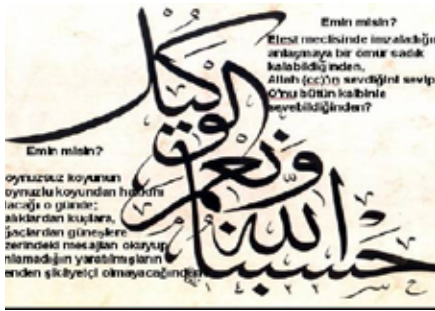 Emin misin?
Elest meclisinde imzaladığın
anlaşmaya bir ömür sadık
kalabildiğinden,
Allah (cc)'ın sevdiğini sevip
O'nu bütün kalbinle
sevebildiğinden?
حسبنا الله ونعم الوكيل
Emin misin?
oynuzsuz koyunun
oynuzlu koyundan hakkını
lacağı o günde;
alıklardan kuşlara,
ğaçlardan güneşlere
zerindeki mesajları okuyup
nlamadığın yaratılmışların
enden şikayetçi olmayacağından